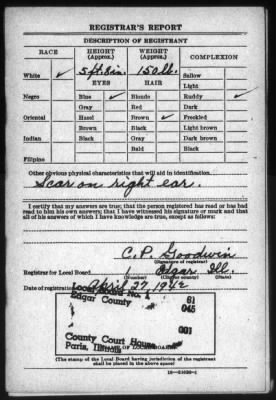 REGISTRAR'S REPORT
DESCRIPTION OF REGISTRANT
RACE
HEIGHT (Approx.)
WEIGHT (Approx.)
COMPLEXION
White ✓
5 ft. 8 in.
150 lb.
Sallow
EYES
HAIR
Light
Negro
Blue ✓
Blonde
Ruddy ✓
Gray
Red
Dark
Oriental
Hazel
Brown ✓
Freckled
Brown
Black
Light brown
Indian
Black
Gray
Dark brown
Bald
Black
Filipino
Other obvious physical characteristics that will aid in identification
Scar on right ear.
I certify that my answers are true; that the person registered has read or has had
read to him his own answers; that I have witnessed his signature or mark and that
all of his answers of which I have knowledge are true, except as follows:
C. P. Goodwin
(Signature of registrar)
Registrar for Local Board 1 Edgar Ill.
(Number) (City or county) (State)
Date of registration April 27, 1942
Local Board No. 1 61
Edgar County 045
001
County Court House
Paris, Illinois
(STAMP OF LOCAL BOARD)
(The stamp of the Local Board having jurisdiction of the registrant
shall be placed in the above space)